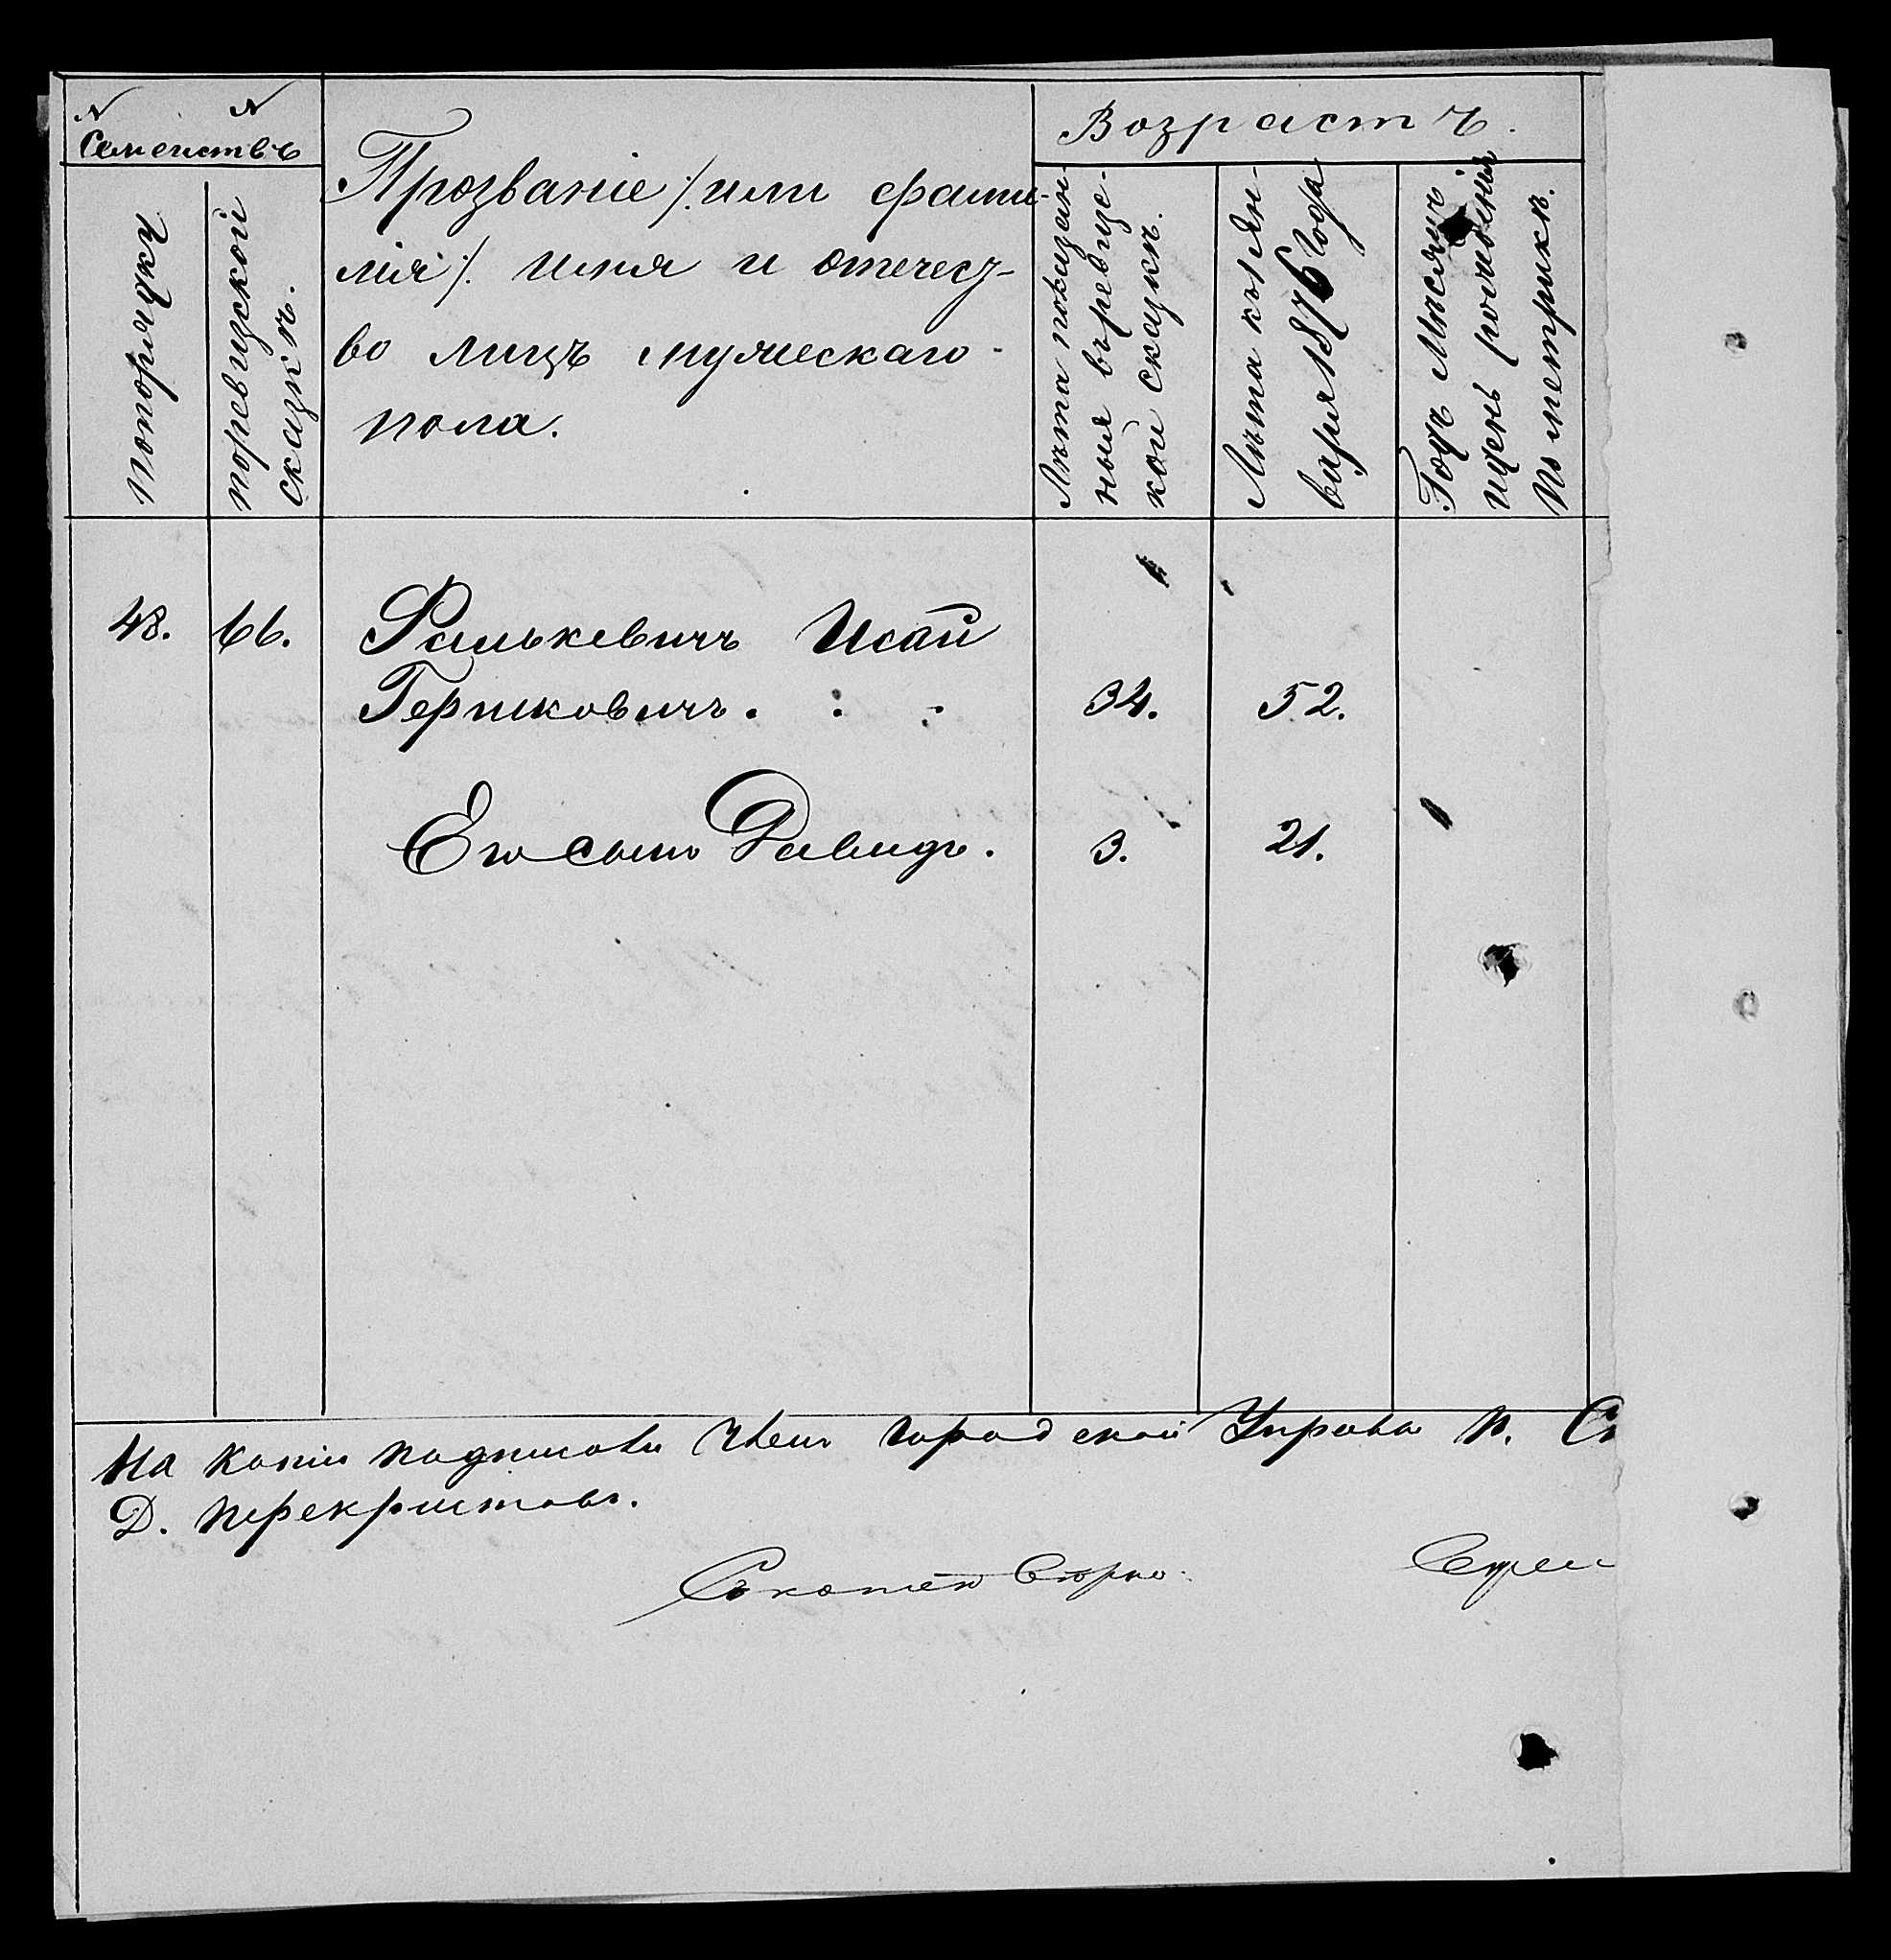 N N
Семействъ
попорядку
поревизской
сказкѣ.
Прозваніе /: или фами-
лія :/. Имя и отчест-
во лицъ мужескаго
пола.
Возрастъ.
Лѣта показан-
ныя въревизс-
кой сказкѣ.
Лѣта къ 1 Ян-
варя 1876 года
Годъ Мѣсяцъ
идень рожденія
по метрикѣ.
48. 66. Фалькевичъ Исай
Гершковичъ. 34. 52.
Его сынъ Давидъ. 3. 21.
На копіи подписали Член Городской Управы П.
Д. Перекрестовъ.
Съ копіею вѣрно: